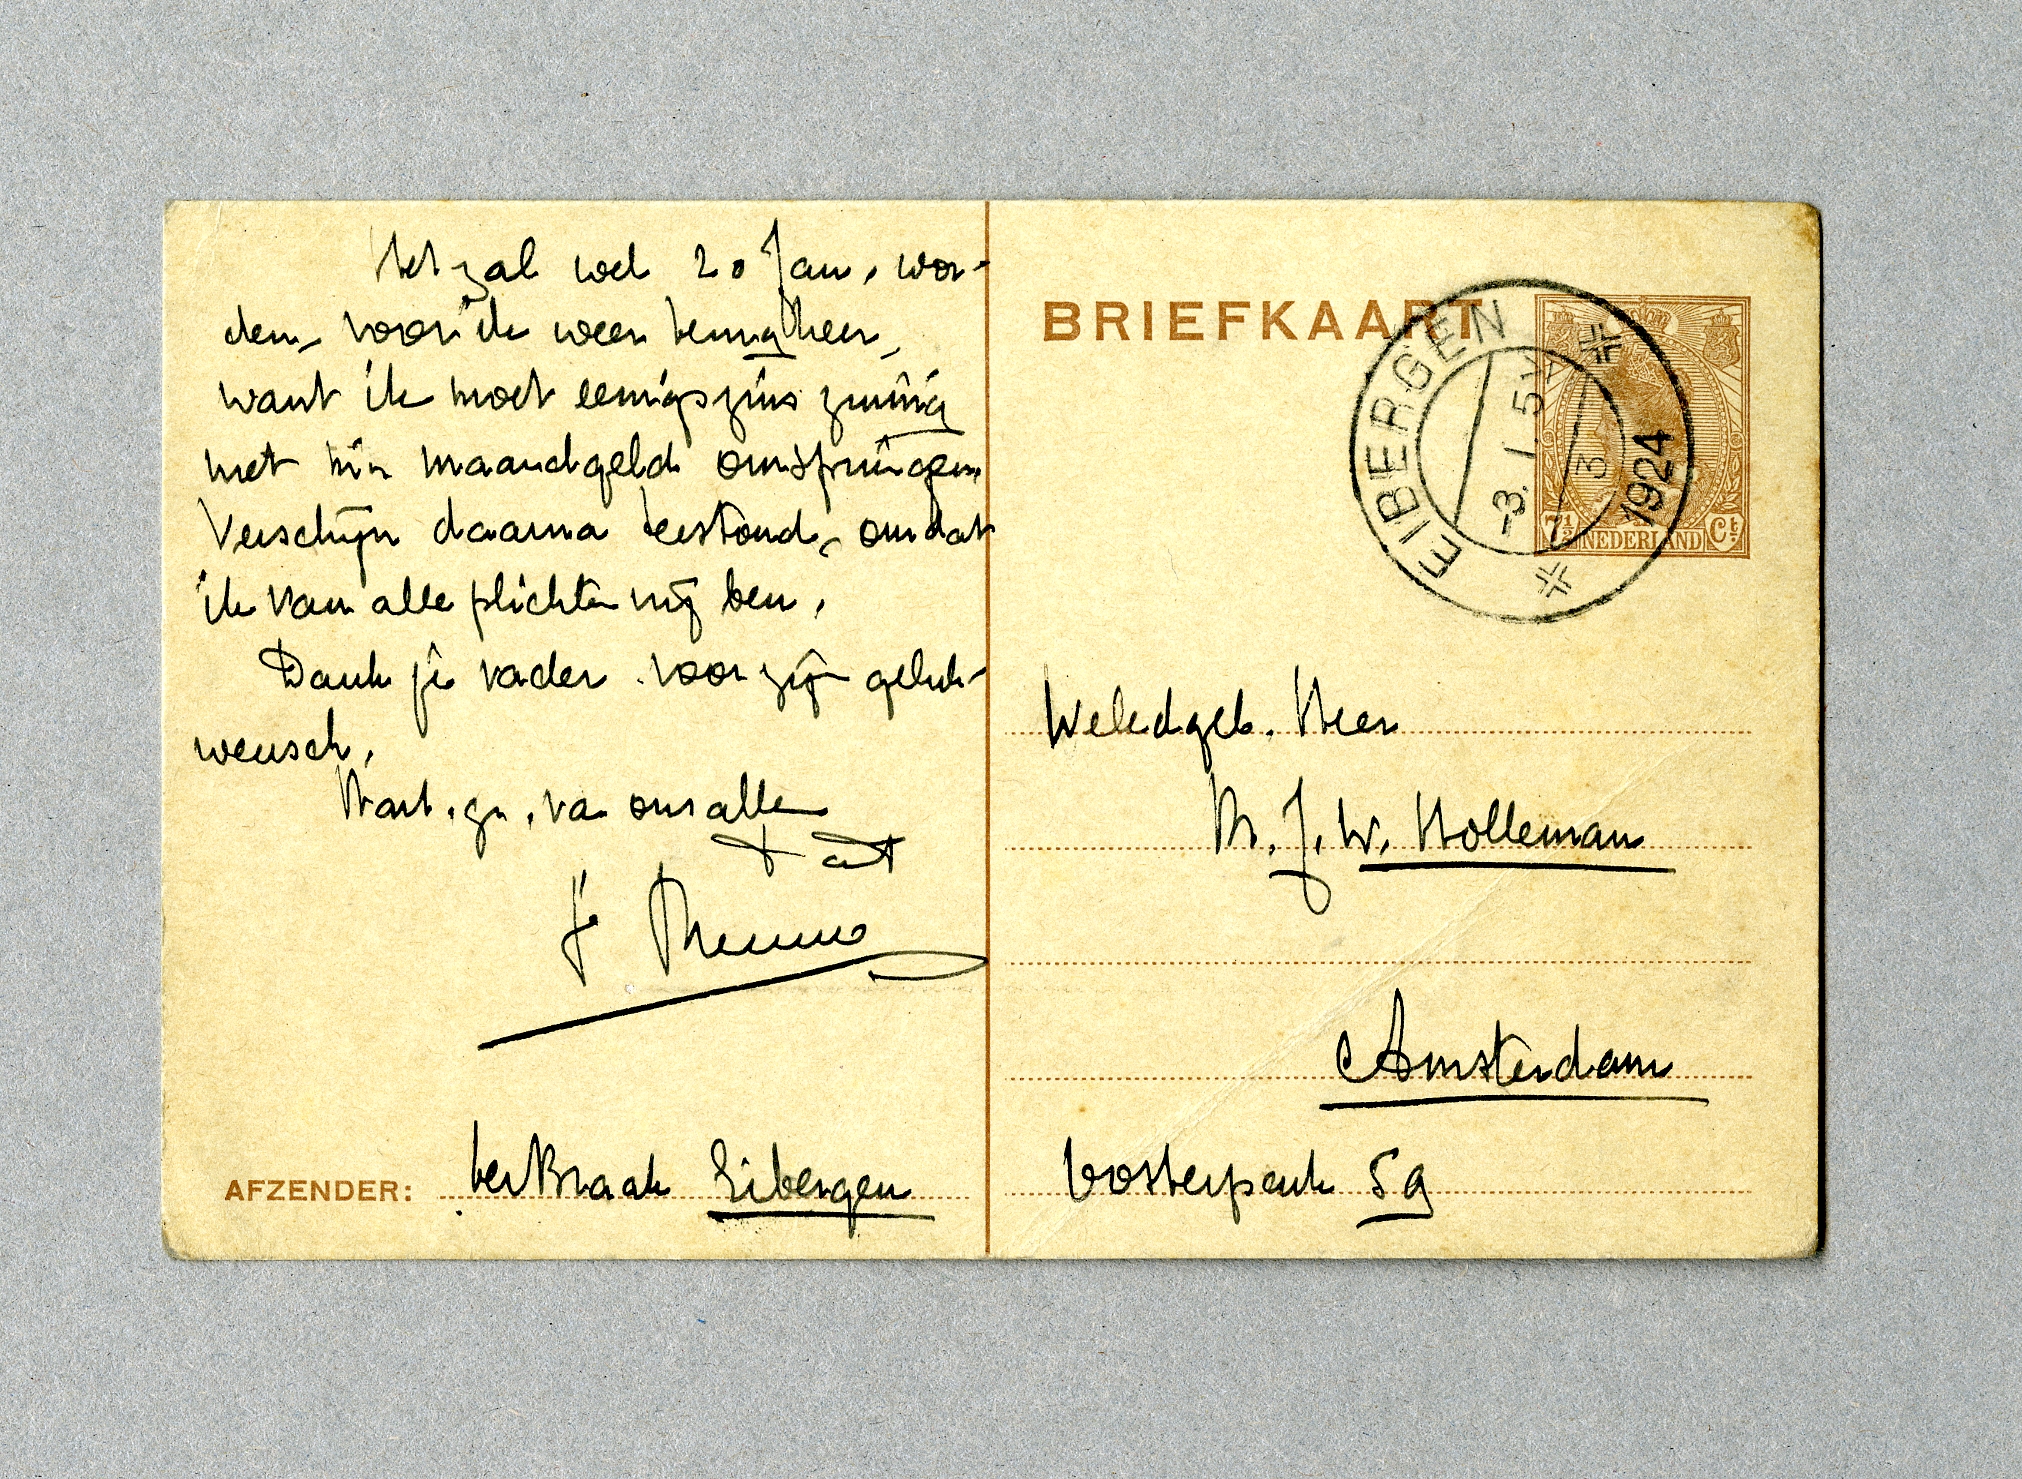 Het zal wel 20 Jan. wor-
den, voor ik weer terug ben,
want ik moet eenigszins zuinig
met m'n maandgeld omspringen.
Verschijn daarna terstond, omdat
ik van alle plichten vrij ben.
Dank je vader voor zijn geluk-
wensch.
Hart. gr. van ons allen
at
je Menno
AFZENDER: ter Braak Eibergen
BRIEFKAART
EIBERGEN
-3. 1. 5V 3
1924
7½ NEDERLAND Ct
Weledgeb. Heer
J. W. Holleman
Amsterdam
Oosterpark 59